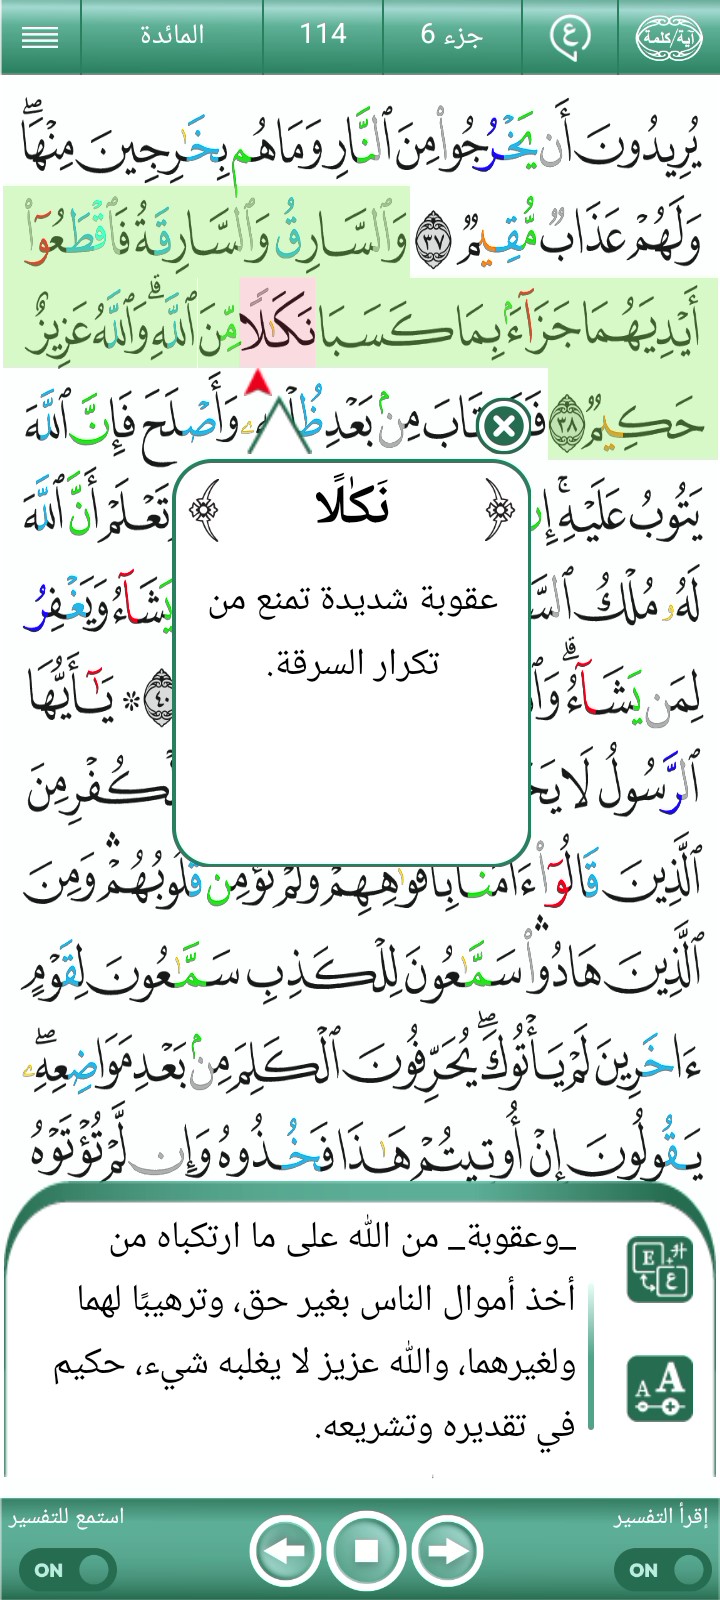 آية/كلمة
ع
جزء 6
114
المائدة
يُرِيدُونَ أَن يَخْرُجُواْ مِنَ ٱلنَّارِ وَمَا هُم بِخَٰرِجِينَ مِنْهَاۖ
وَلَهُمْ عَذَابٌ مُّقِيمٌ ٣٧ وَٱلسَّارِقُ وَٱلسَّارِقَةُ فَٱقْطَعُوٓاْ
أَيْدِيَهُمَا جَزَآءَۢ بِمَا كَسَبَا نَكَٰلًا مِّنَ ٱللَّهِۗ وَٱللَّهُ عَزِيزٌ
حَكِيمٌ ٣٨ تَابَ مِنۢ بَعْدِ وَأَصْلَحَ فَإِنَّ ٱللَّهَ
يَتُوبُ عَلَيْهِۚ تَعْلَمْ أَنَّ ٱللَّهَ
لَهُۥ مُلْكُ يَشَآءُ وَيَغْفِرُ
لِمَن يَشَآءُۗ ٤٠ ۞ يَٰٓأَيُّهَا
ٱلرَّسُولُ لَا ٱلْكُفْرِ مِنَ
نَكَٰلًا
عقوبة شديدة تمنع من
تكرار السرقة.
ٱلَّذِينَ قَالُوٓاْ ءَامَنَّا بِأَفْوَٰهِهِمْ وَلَمْ تُؤْمِن قُلُوبُهُمْۛ وَمِنَ
ٱلَّذِينَ هَادُواْۛ سَمَّٰعُونَ لِلْكَذِبِ سَمَّٰعُونَ لِقَوْمٍ
ءَاخَرِينَ لَمْ يَأْتُوكَۖ يُحَرِّفُونَ ٱلْكَلِمَ مِنۢ بَعْدِ مَوَاضِعِهِۦۖ
يَقُولُونَ إِنْ أُوتِيتُمْ هَٰذَا فَخُذُوهُ وَإِن لَّمْ تُؤْتَوْهُ
_وعقوبة_ من الله على ما ارتكباه من
أخذ أموال الناس بغير حق، وترهيبًا لهما
ولغيرهما، والله عزيز لا يغلبه شيء، حكيم
في تقديره وتشريعه.
إقرأ التفسير
استمع للتفسير
ON
ON